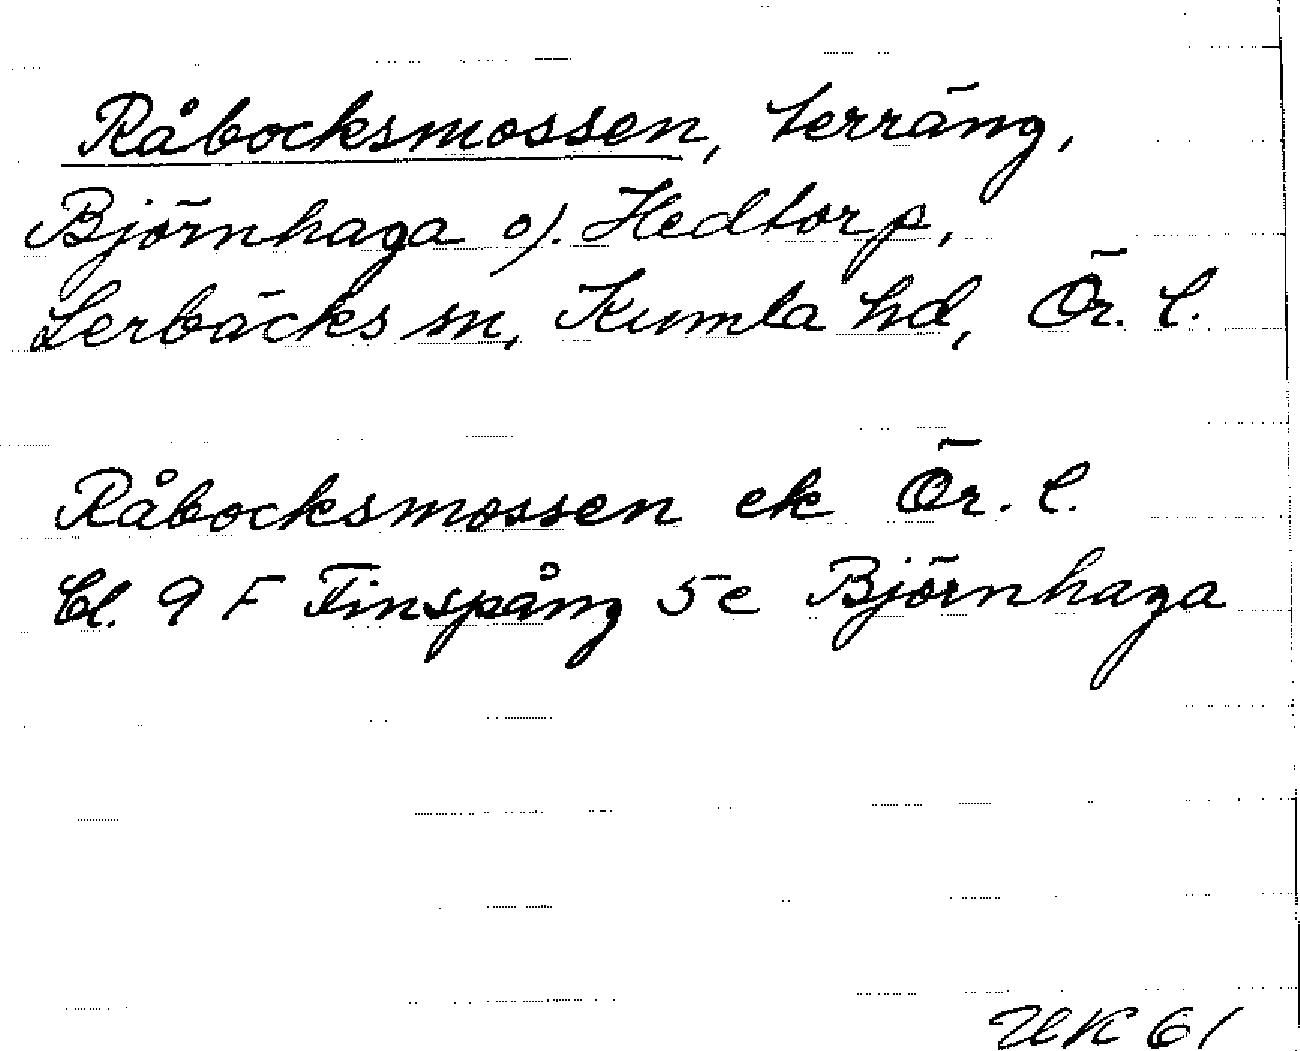 Råbocksmossen, terräng,
Björnhaga o). Hedtorp,
Lerbäcks sn, Kumla hd, Ör. l.
Råbocksmossen ek Ör. l.
Bl. 9 F Finspång 5e Björnhaga
UK 61